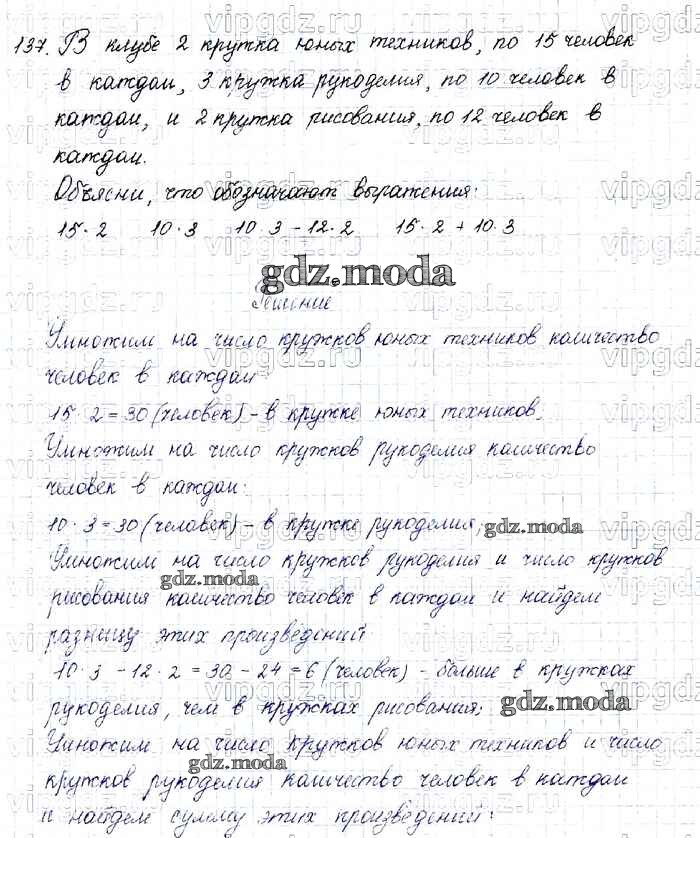 137. В клубе 2 кружка юных техников, по 15 человек
в каждом, 3 кружка рукоделия, по 10 человек в
каждом, и 2 кружка рисования, по 12 человек в
каждом.
Объясни, что обозначают выражения:
15·2 10·3 10·3-12·2 15·2+10·3
gdz.moda
Решение
Умножим на число кружков юных техников количество
человек в каждом:
15·2=30 (человек) - в кружке юных техников.
Умножим на число кружков рукоделия количество
человек в каждом:
10·3=30 (человек) - в кружке рукоделия; gdz.moda
Умножим на число кружков рукоделия и число кружков
gdz.moda
рисования количество человек в каждом и найдем
разницу этих произведений:
10·3-12·2=30-24=6 (человек) - больше в кружках
рукоделия, чем в кружках рисования; gdz.moda
Умножим на число кружков юных техников и число
gdz.moda
кружков рукоделия количество человек в каждом
и найдем сумму этих произведений: